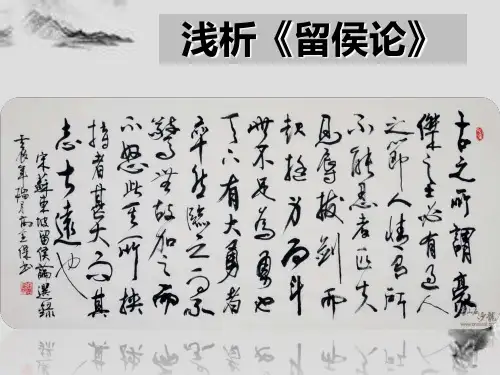 浅析《留侯论》
古之所謂豪
傑之士必有過人
之節人情有所
不能忍者匹夫
見辱拔劍而
起挺身而斗
此不足為勇也
天下有大勇者
卒然臨之而不
驚無故加之而
不怒此其所挾
持者甚大而其
志甚遠也
宋蘇東坡留侯論選錄
壬辰年